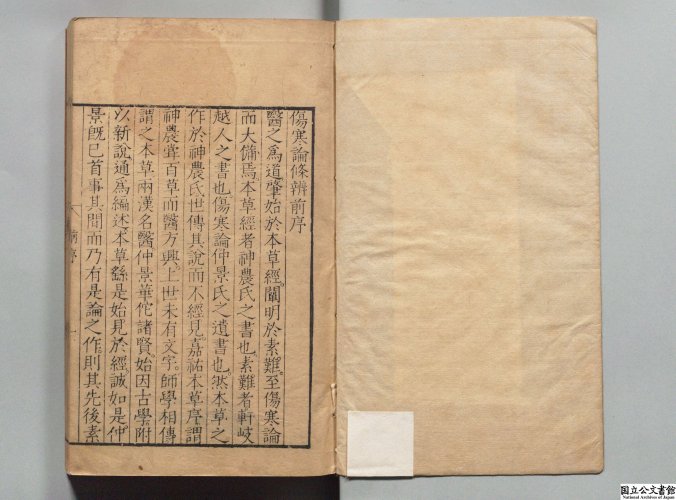 傷寒論條辨前序
醫之爲道。肇始於本草經。闡明於素難。至傷寒論
而大備焉。本草經者。神農氏之書也。素難者。軒岐
越人之書也。傷寒論。仲景氏之遺書也。然本草之
作於神農氏。世傳其說而不經見。嘉祐本草序。謂
神農甞百草而醫方興。上世未有文字。師學相傳
謂之本草。兩漢名醫。仲景華佗諸賢。始因古學。附
以新說。通爲編述。本草繇是始見於經。誠如是。仲
景旣已首事其間。而乃有是論之作。則其先後素
前序
国立公文書館
National Archives of Japan